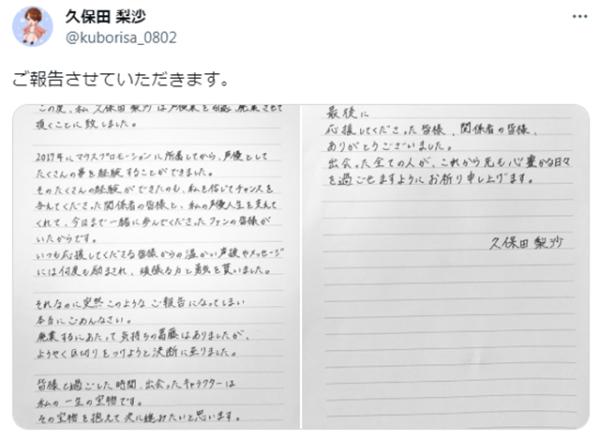 久保田 梨沙
@kuborisa_0802
ご報告させていただきます。
この度、私 久保田梨沙は声優業を 廃業させて
頂くことに致しました。
2017年にマウスプロモーションに所属してから、声優として
たくさんの事を経験することができました。
そのたくさんの経験ができたのも、私を信じてチャンスを
与えてくださった関係者の皆様と、私の声優人生を支えて
くれて、今日まで一緒に歩んでくださったファンの皆様が
いたからです。
いつも応援してくださる皆様からの温かい声援やメッセージ
には何度も励まされ、頑張る力と勇気を貰いました。
それなのに突然このような ご報告になってしまい
本当にごめんなさい。
廃業するにあたって気持ちの葛藤はありましたが、
ようやく区切りをつけようと決断に至りました。
皆様と過ごした時間、出会ったキャラクターは
私の一生の宝物です。
その宝物を抱えて次に進みたいと思います。
最後に
応援してくださった皆様、関係者の皆様、
ありがとうございました。
出会った全ての人が、これから先も心豊かな日々
を過ごせますようにお祈り申し上げます。
久保田 梨沙